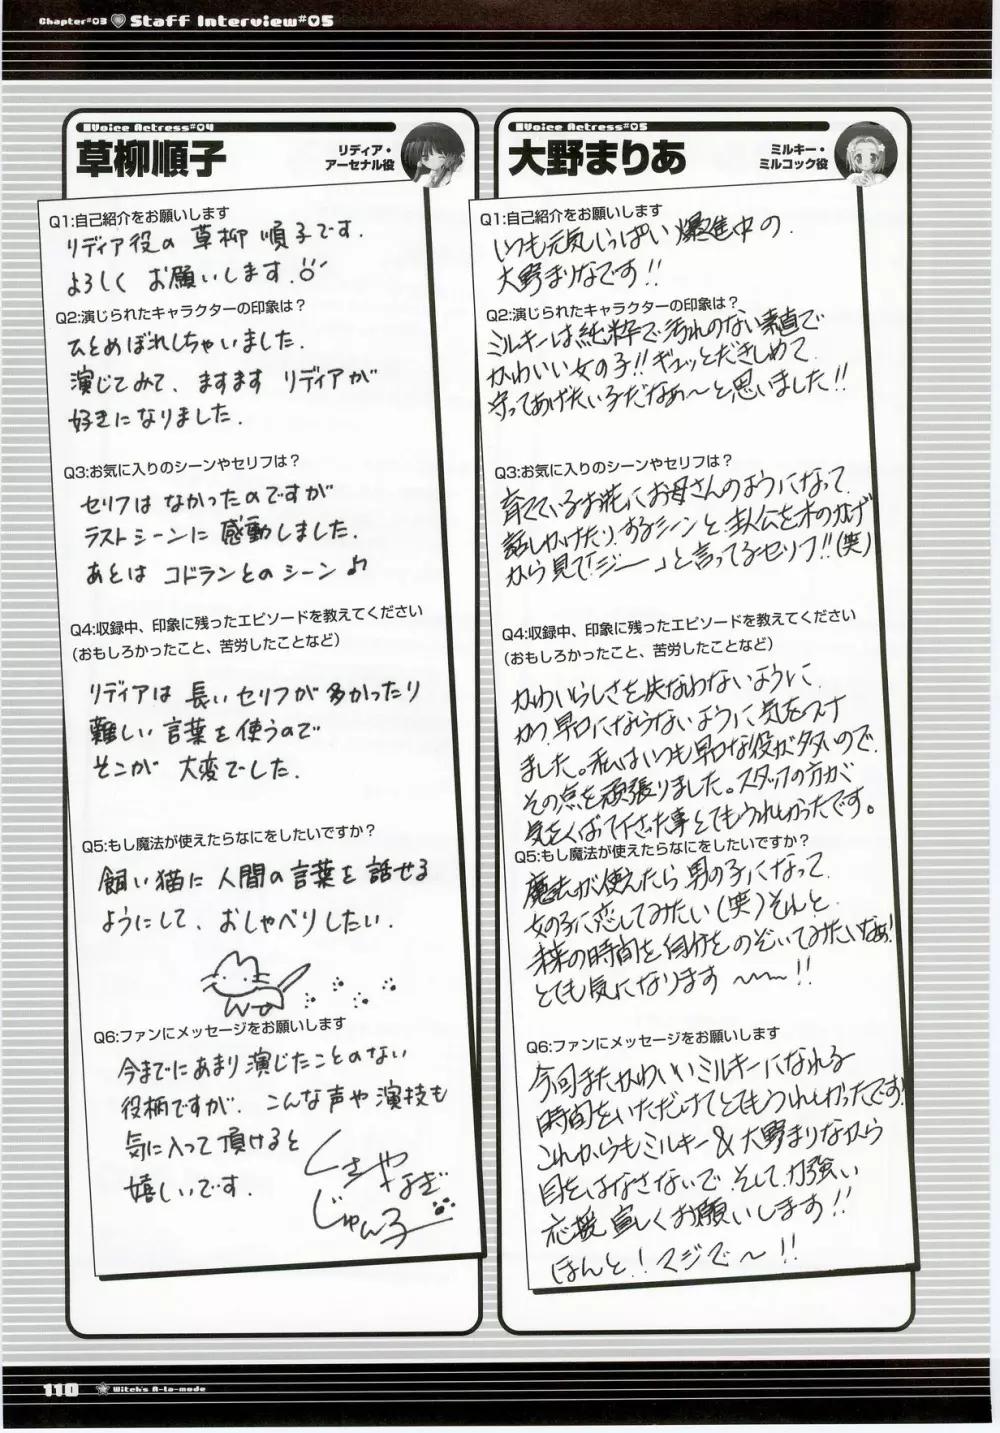 Chapter#03 Staff Interview#05
Voice Actress#04
草柳順子
リディア・
アーセナル役
Q1:自己紹介をお願いします
リディア役の 草柳 順子です.
よろしく お願いします.
Q2:演じられたキャラクターの印象は？
ひとめぼれしちゃいました.
演じてみて、ますます リディアが
好きになりました.
Q3:お気に入りのシーンやセリフは？
セリフは なかったのですが
ラストシーンに 感動しました.
あとは コドランとのシーン♪
Q4:収録中、印象に残ったエピソードを教えてください
（おもしろかったこと、苦労したことなど）
リディアは 長いセリフが 多かったり
難しい 言葉を 使うので
そこが 大変でした.
Q5:もし魔法が使えたらなにをしたいですか？
飼い猫に 人間の言葉を 話せる
ようにして、おしゃべりしたい.
Q6:ファンにメッセージをお願いします
今までにあまり演じたことのない
役柄ですが、こんな声や演技も
気に入って頂けると
嬉しいです.
くさやなぎ
じゅん子
Voice Actress#05
大野まりあ
ミルキー・
ミルコック役
Q1:自己紹介をお願いします
いつも元気いっぱい 爆進中の
大野まりなです!!
Q2:演じられたキャラクターの印象は？
ミルキーは純粋で汚れのない素直で
かわいい女の子!!ギュッとだきしめて
守ってあげたい子だなぁ〜と思いました!!
Q3:お気に入りのシーンやセリフは？
育てているお花にお母さんのようになって
話しかけたりするシーンと、主人公を木のかげ
から見て「ジー」と言ってるセリフ!!(笑)
Q4:収録中、印象に残ったエピソードを教えてください
（おもしろかったこと、苦労したことなど）
かわいらしさを失なわないように、
かつ早口にならないように気をつけ
ました。私はいつも早口な役が多いので、
その点を頑張りました。スタッフの方が
気をくばって下さった事とてもうれしかったです。
Q5:もし魔法が使えたらなにをしたいですか？
魔法が使えたら男の子になって
女の子に恋してみたい(笑)そんと
未来の時間を自分をのぞいてみたいなぁ!
とても気になります〜〜!!
Q6:ファンにメッセージをお願いします
今回またかわいいミルキーになれる
時間をいただけてとてもうれしかったです!
これからもミルキー＆大野まりなから
目をはなさないで そして力強い
応援宜しくお願いします!!
ほんと!マジで〜!!
110 Witch's A-la-mode